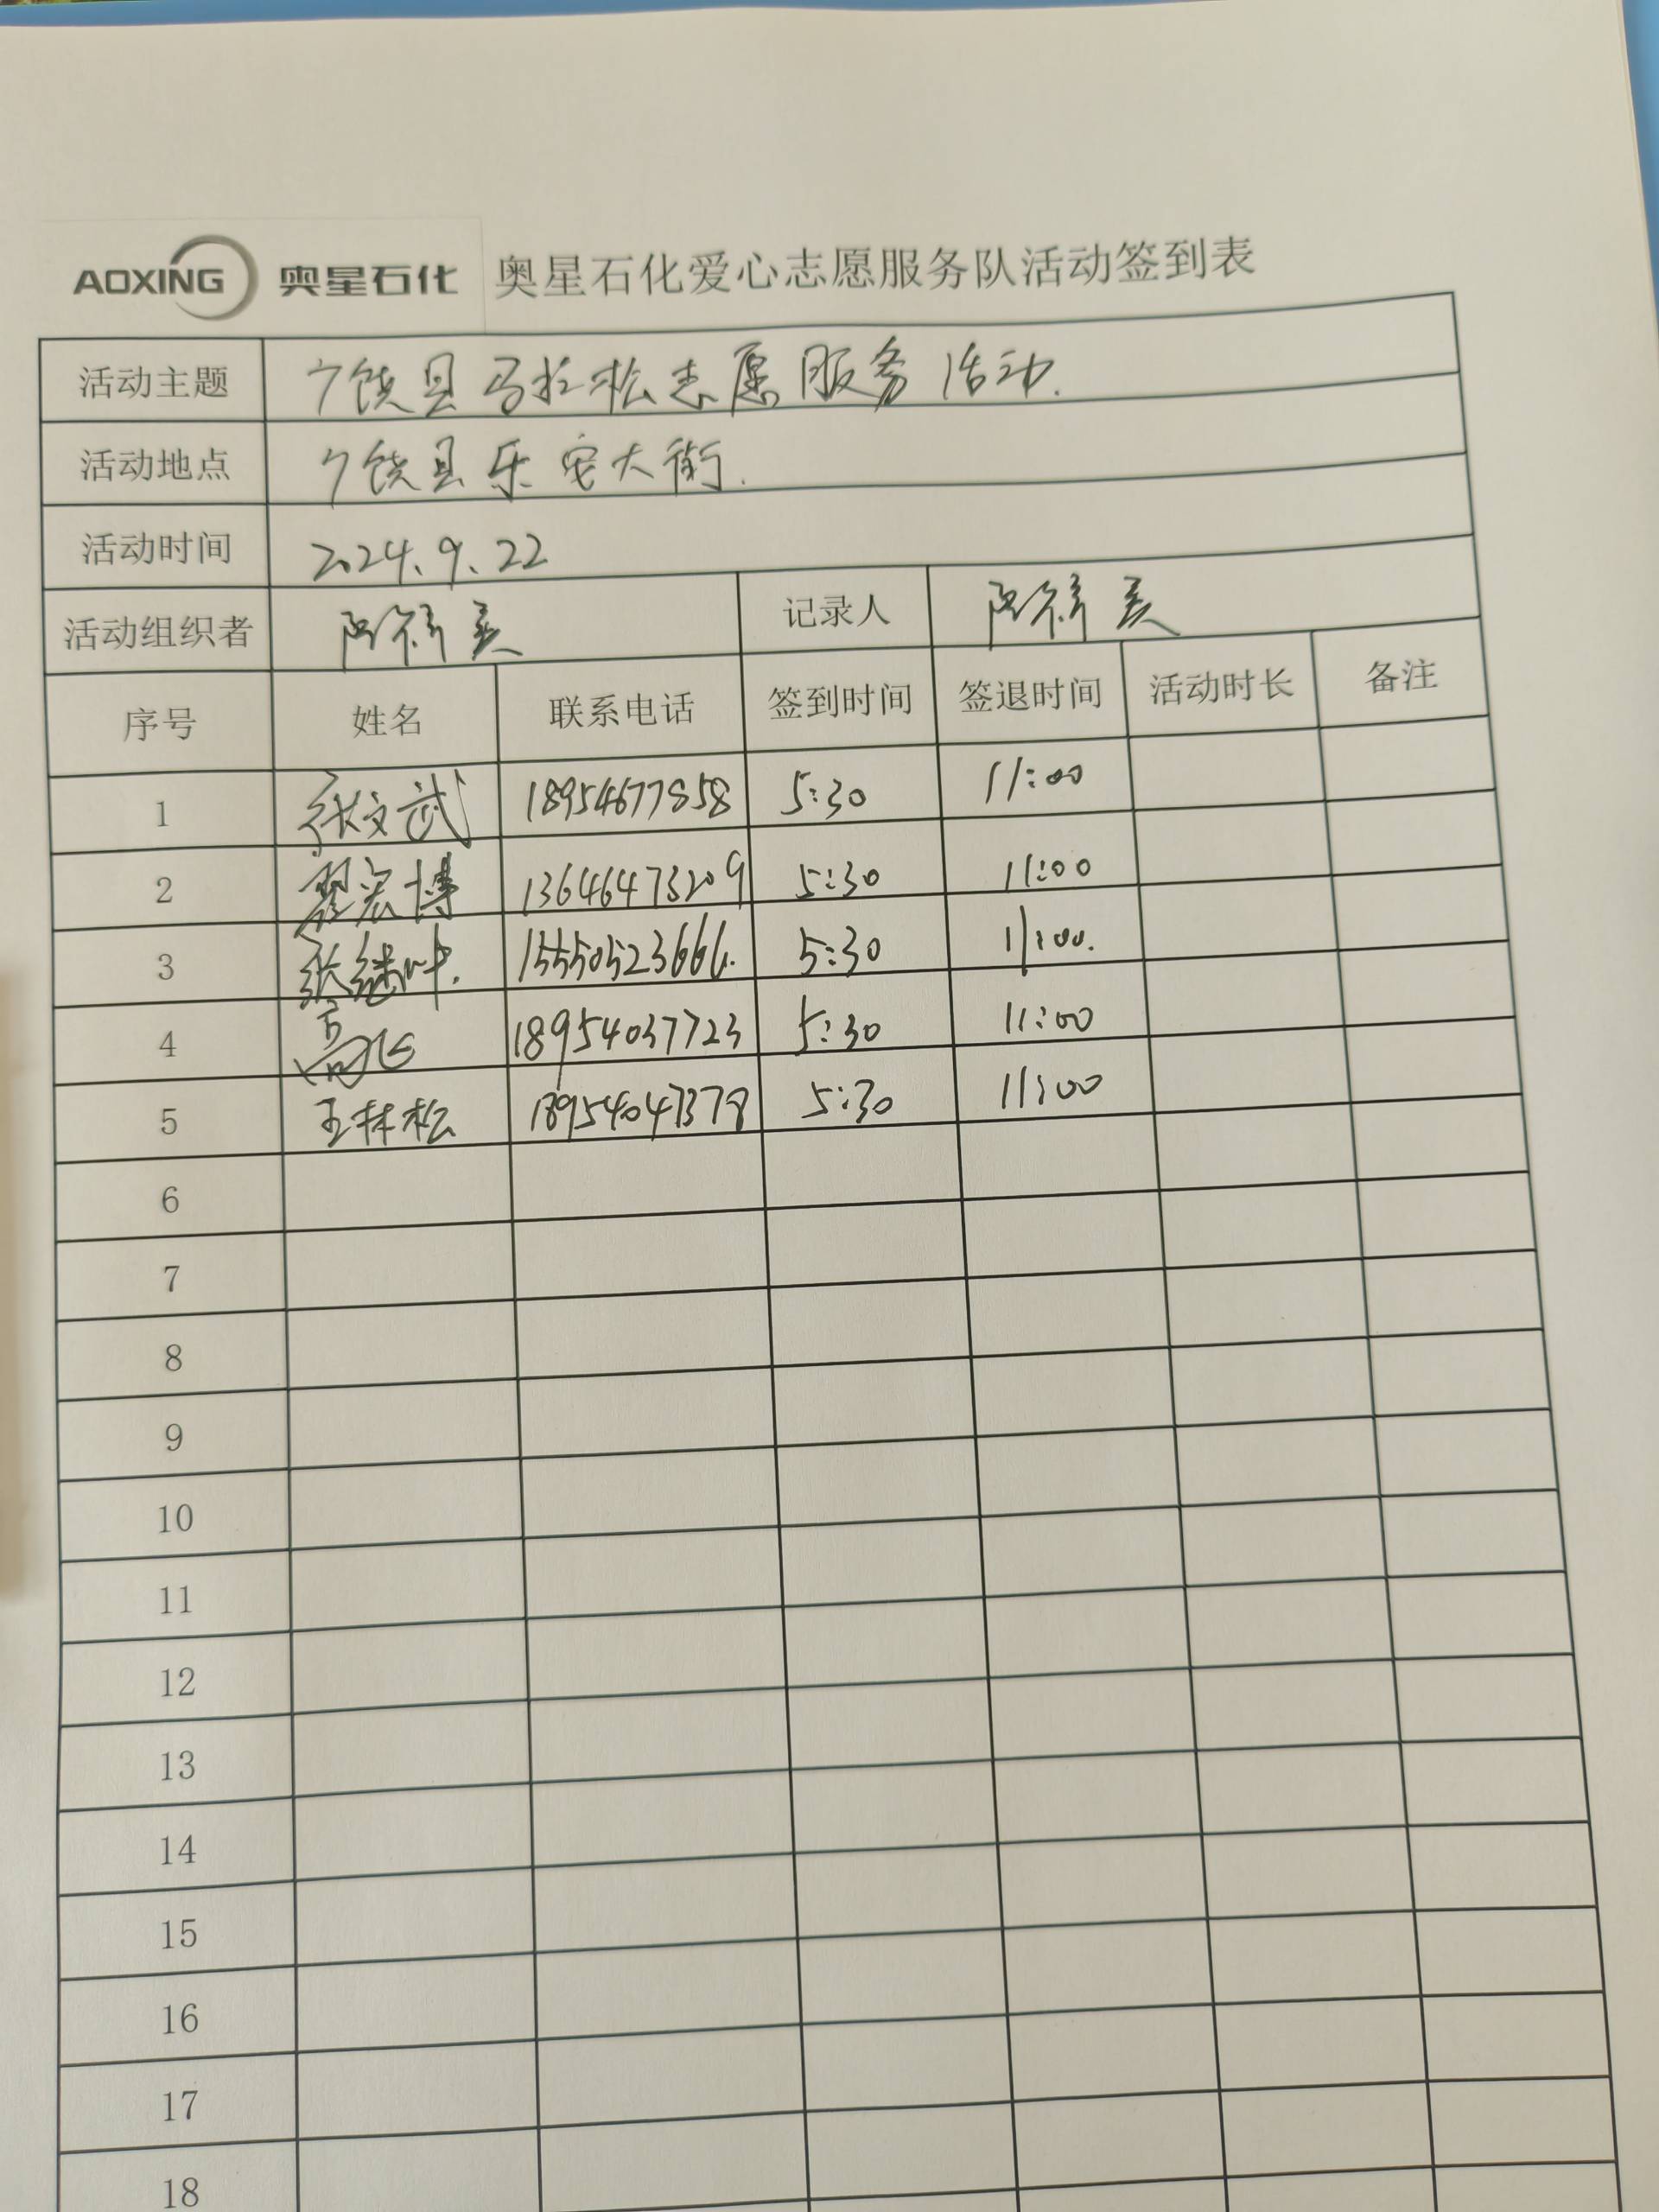 AOXING 奥星石化 奥星石化爱心志愿服务队活动签到表
活动主题 广饶县马拉松志愿服务活动.
活动地点 广饶县乐安大街.
活动时间 2024.9.22
活动组织者 记录人
序号 姓名 联系电话 签到时间 签退时间 活动时长 备注
1 张文武 18954677858 5:30 11:00
2 翟宏博 13646473209 5:30 11:00
3 张继叶. 15550523666. 5:30 11:00.
4 高飞 18954037723 5:30 11:00
5 王林松 18954047378 5:30 11:00
6
7
8
9
10
11
12
13
14
15
16
17
18